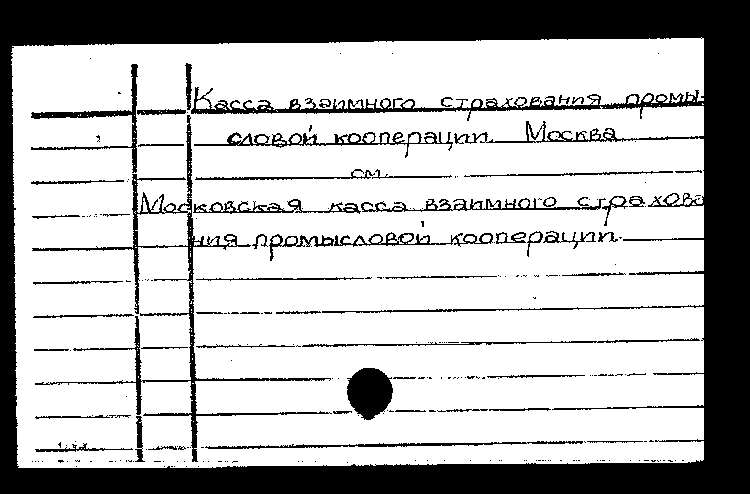 Касса взаимного страхования промы-
словой кооперации. Москва
см.
Московская касса взаимного страхова
ния промысловой кооперации.